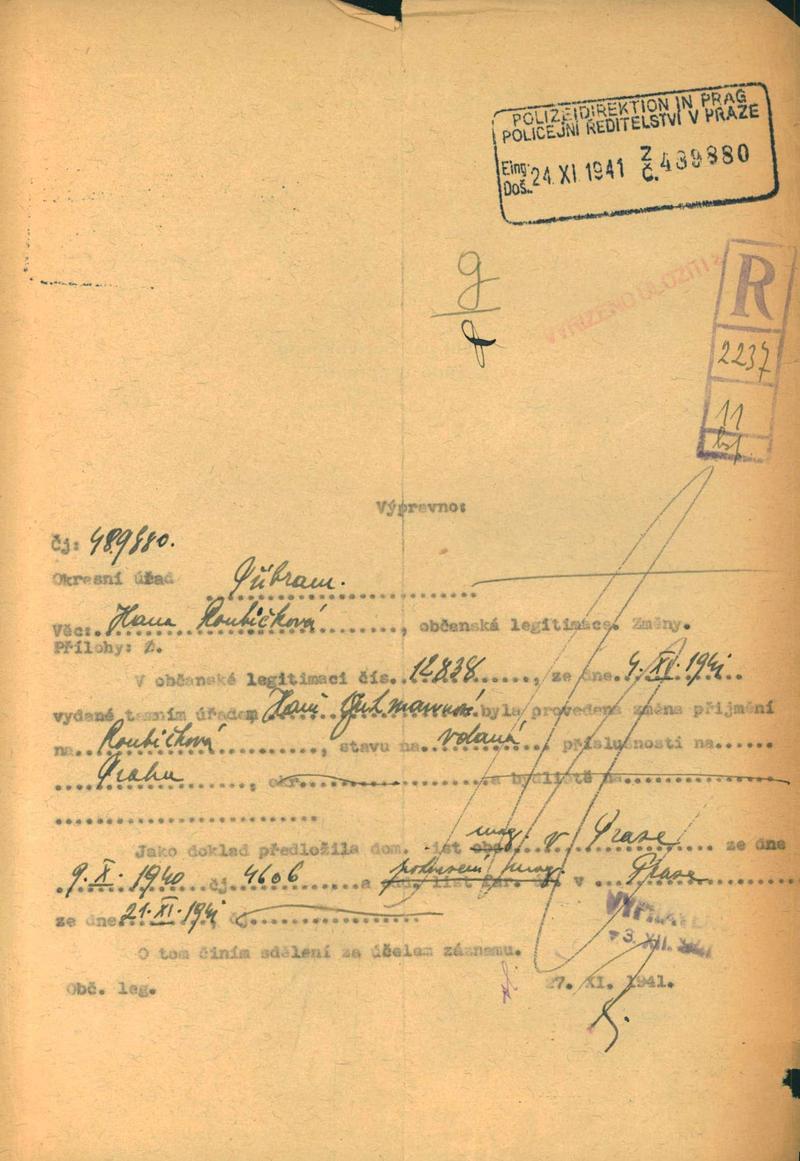 POLIZEIDIREKTION IN PRAG
POLICEJNÍ ŘEDITELSTVÍ V PRAZE
Eing. Doš. 24. XI. 1941 Z Č. 489880
g
VYŘÍZENO ULOŽITI
R
2237
11
Výpravno:
Čj: 489880.
Okresní úřad Příbram.
Věc: Hana Roubíčková, občanská legitimace. Změny.
Přílohy: Ž.
V občanské legitimaci čís. 12838, ze dne 4. XI. 1941
vydané tamním úřadem Haně byla provedena změna příjmení
na Roubíčková, stavu na vdaná příslušnosti na
Praha, okr. a bydliště na
Jako doklad předložila dom. list mag. v Praze ze dne
9. X. 1940 čj. 4606 a potvrzení mag. v Praze
ze dne 21. XI. 1941 čj.
VYPRAVENO
3. XII. 1941
O tom činím sdělení za účelem záznamu.
Obč. leg. 27. XI. 1941.